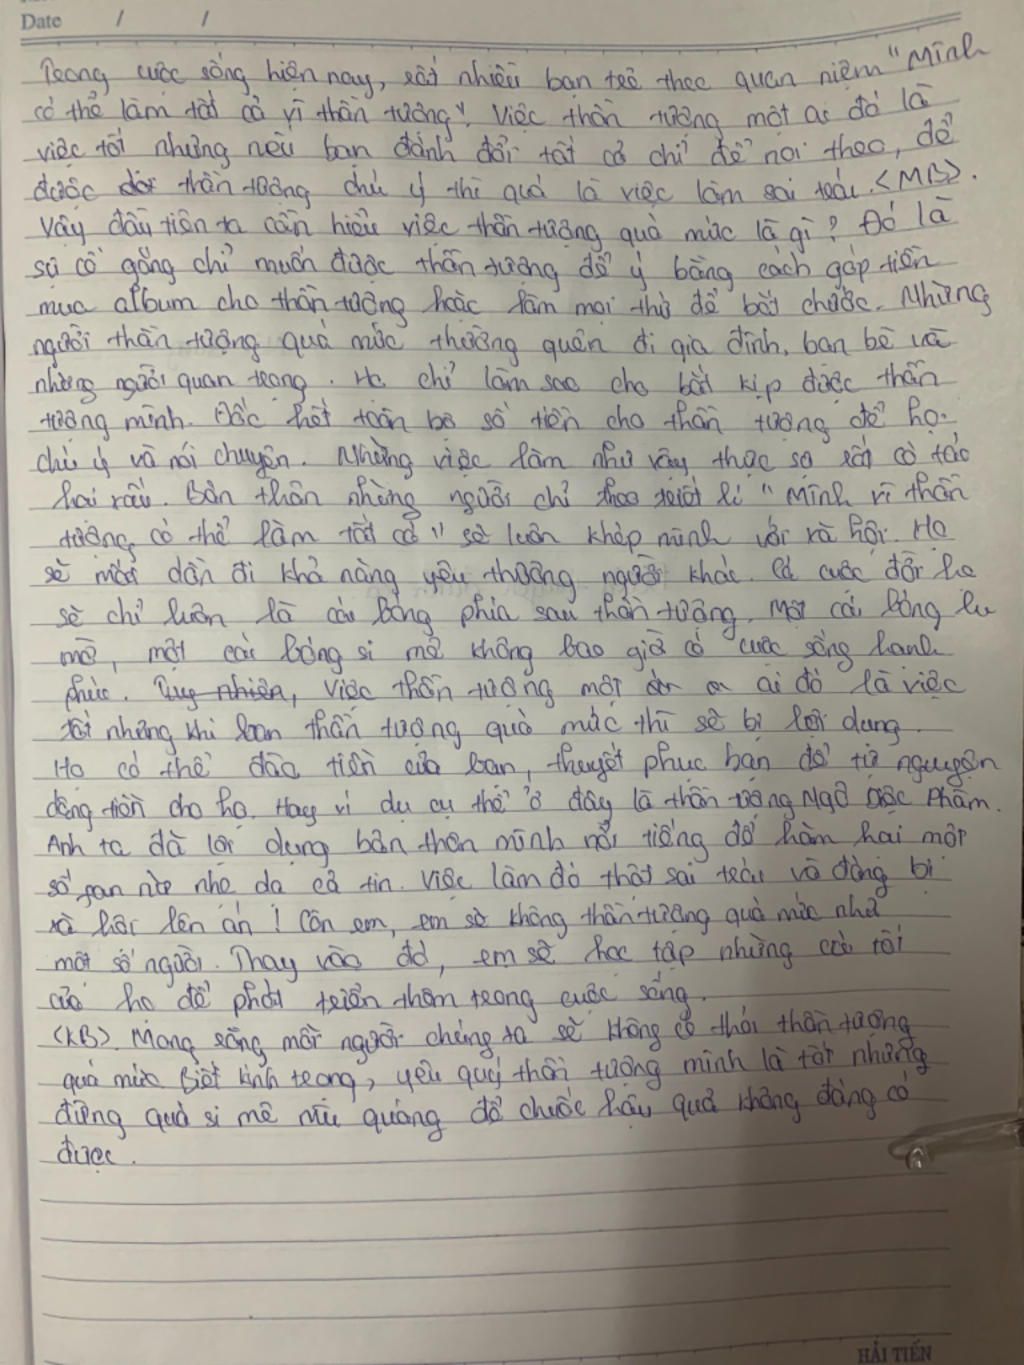 Date / /
Trong cuộc sống hiện nay, rất nhiều bạn trẻ theo quan niệm "Mình
có thể làm tất cả vì thần tượng". Việc thần tượng một ai đó là
việc tốt nhưng nếu bạn đánh đổi tất cả chỉ để noi theo, để
được thần tượng chú ý thì quả là việc làm sai trái. <MB>.
Vậy đầu tiên ta cần hiểu việc thần tượng quá mức là gì? Đó là
sự cố gắng chỉ muốn được thần tượng để ý bằng cách góp tiền
mua album cho thần tượng hoặc làm mọi thứ để bắt chước. Những
người thần tượng quá mức thường quên đi gia đình, bạn bè và
những người quan trọng. Họ chỉ làm sao cho bắt kịp được thần
tượng mình. Dốc hết toàn bộ số tiền cho thần tượng để họ
chú ý và nói chuyện. Những việc làm như vậy thực sự rất có tác
hại xấu. Bản thân những người chỉ theo triết lí "Mình vì thần
tượng có thể làm tất cả" sẽ luôn khép mình với xã hội. Họ
sẽ mất dần đi khả năng yêu thương người khác. Cả cuộc đời họ
sẽ chỉ luôn là cái bóng phía sau thần tượng. Một cái bóng lu
mờ, một cái bóng si mê không bao giờ có cuộc sống hạnh
phúc. Tuy nhiên, việc thần tượng một ai đó là việc
tốt nhưng khi bạn thần tượng quá mức thì sẽ bị lợi dụng.
Họ có thể đào tiền của bạn, thuyết phục bạn để tự nguyện
dâng tiền cho họ. Hay ví dụ cụ thể ở đây là thần tượng Ngô Diệc Phàm.
Anh ta đã lợi dụng bản thân mình nổi tiếng để hãm hại một
số fan nữ nhẹ dạ cả tin. Việc làm đó thật sai trái và đáng bị
xã hội lên án! Còn em, em sẽ không thần tượng quá mức như
một số người. Thay vào đó, em sẽ học tập những cái tốt
của họ để phát triển thêm trong cuộc sống.
<KB>. Mong rằng mỗi người chúng ta sẽ không có thói thần tượng
quá mức. Biết kính trọng, yêu quý thần tượng mình là tốt nhưng
đừng quá si mê mù quáng để chuốc hậu quả không đáng có
được.
HẢI TIẾN